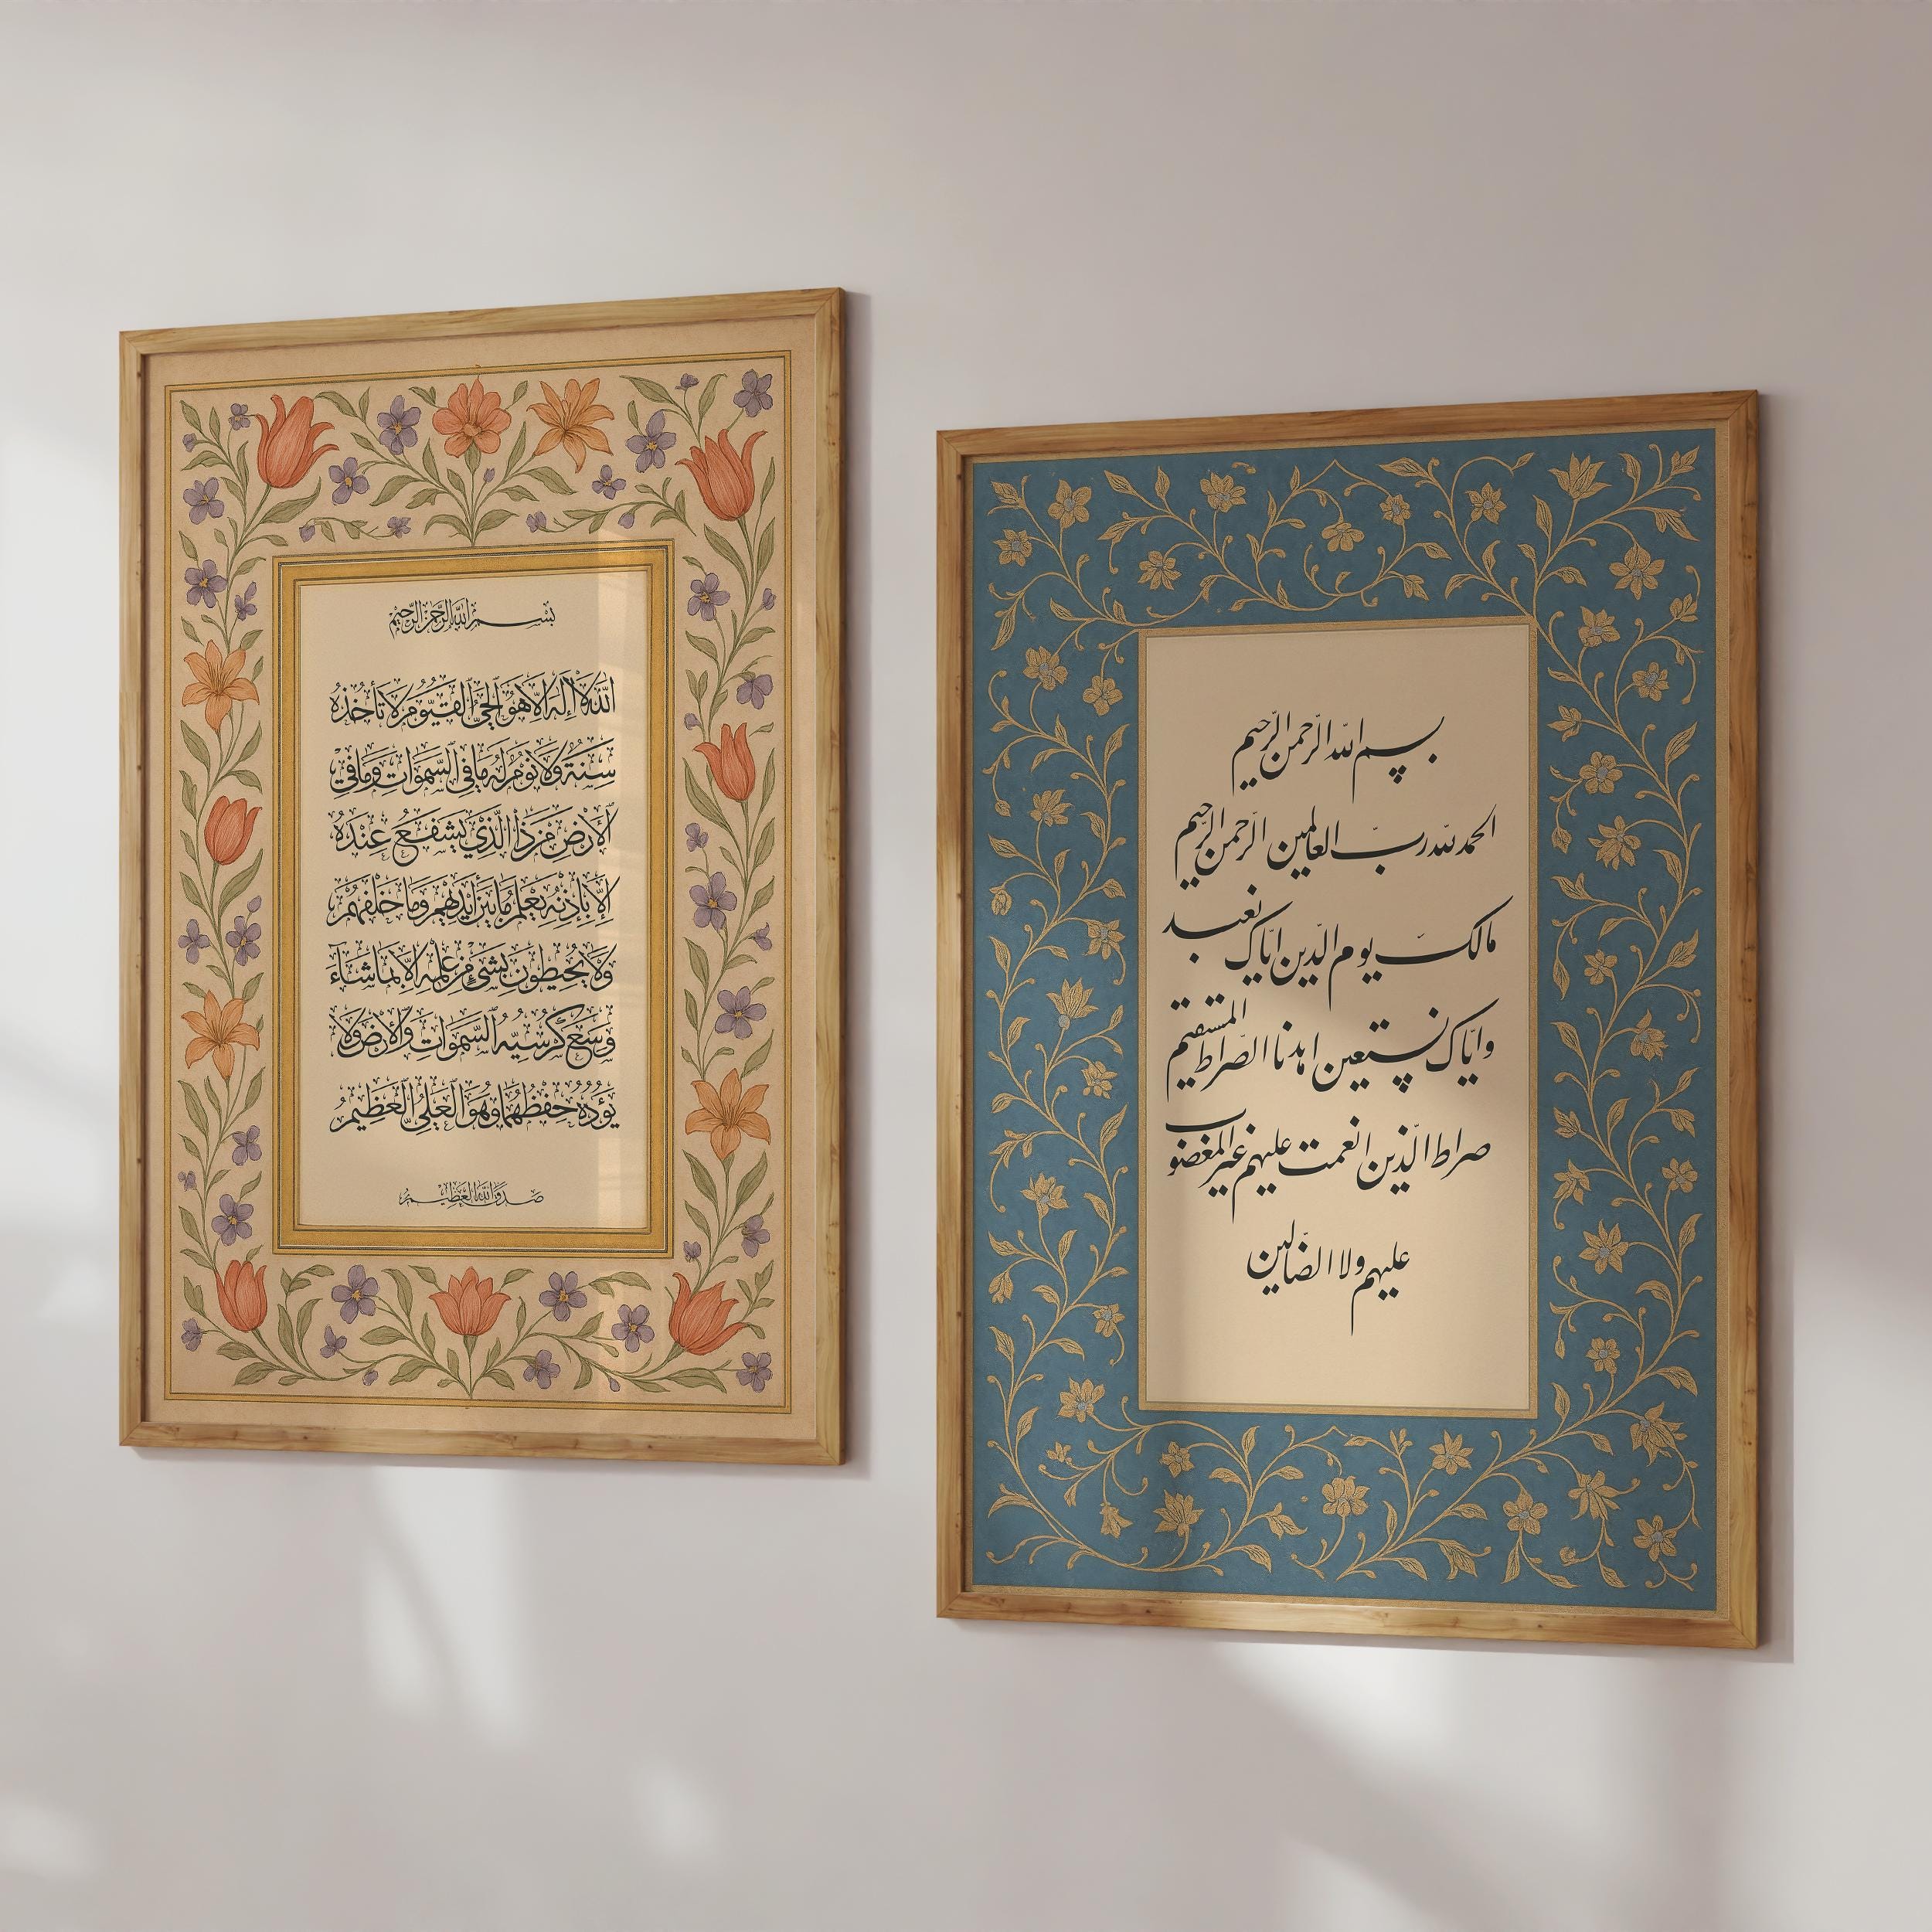 بسم الله الرحمن الرحيم
الله لا إله إلا هو الحي القيوم لا تأخذه
سنة ولا نوم له ما في السموات وما في
الأرض من ذا الذي يشفع عنده
إلا بإذنه يعلم ما بين أيديهم وما خلفهم
ولا يحيطون بشيء من علمه إلا بما شاء
وسع كرسيه السموات والأرض ولا
يؤده حفظهما وهو العلي العظيم
صدق الله العظيم
بسم الله الرحمن الرحيم
الحمد لله رب العالمين الرحمن الرحيم
مالك يوم الدين اياك نعبد
واياك نستعين اهدنا الصراط المستقيم
صراط الذين انعمت عليهم غير المغضوب
عليهم ولا الضالين